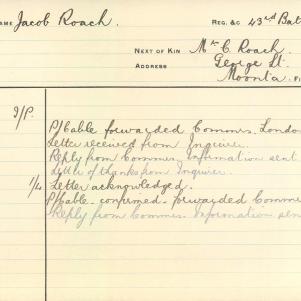 NAME Jacob Roach. REG. &C 43rd Bat
NEXT OF KIN Mr C. Roach.
ADDRESS George St.
Moonta.
I/P.
P/Cable forwarded Commrs. London
Letter received from Inquirer.
Reply from Commrs. Information sent
Letter of thanks from Inquirer.
1/4 Letter acknowledged.
P/Cable confirmed. forwarded Comm
Reply from Commrs. Information sen